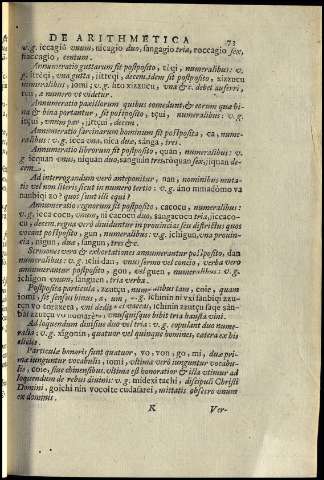 DE ARITHMETICA
73
v.g. iccagiô vnum, nicagio duo, sangagio tria, roccagio sex,
fiaccagio, centum.
Annumeratio guttarum fit postposito, tẽqi, numeralibus: v.
g. itteqi, vna gutta, jitteqi, decem. idem fit postposito, xizzucu
numeralibus, iomi; v.g. fito xizzucu, vna &c. debet auferri,
vt a numero vt videtur.
Annumeratio paxillorum quibus comedunt, & eorum quæ bi-
na & bina portantur, fit postposito, tçui, numeralibus: v.g.
itçui, vnum par, jitçui, decem.
Annumeratio sarcinarum hominum fit postposito, ca, nume-
ralibus: v.g. icca vna, nica duæ, sanga, tres.
Annumeratio librorum fit postposito, quan, numeralibus: v.
g iequan vnus, niquan duo, sanguin tres, roquan sex, jiquan de-
cem
Ad interrogandum verò anteponitur, nan, nominibus muta-
tis vel non literis sicut in numero tertio: v.g. âno nmadomo va
nanbiqi zo? quot sunt illi equi?
Annumeratio regnorum fit postposito, cacocu, numeralibus:
v.g. iccacocu, vnum, ni cacocu duo, sangacocu tria, jiccaco-
cu, decem. regna verò diuiduntur in prouincias seu districtus quos
vocant postposito, gun, numeralibus: v.g. ichigun, vna prouin-
cia, nigun, duæ, sangun, tres &c.
Sermones verò & exhortationes annumerantur postposito, dan
numeralibus: v.g. ichi dan, vnus sermo vel concio, verba verò
annumerantur postposito, gon, vel guen, numeralibus: v.g.
ichigon vnum, sanguen, tria verba.
Postposita particula, zzutçu, numeralibus tam, coie, quam
iomi, fit sensus binus, a, vnn, g. ichinin ni vxi sanbiqi zzu-
tçu vo toraxeta, vni dedit ichinin zzutçu saqe san-
bai zzutçu vo nomarè, vnusquisque bibit tria hausta vini.
Ad loquendum diuisim duo vel tria: v.g. copulant duo nume-
ralia: v.g. xigonin, quatuor vel quinque homines, cætera ex his
elicies.
Particulæ honoris sunt quatuor, vo, von, go, mi, duæ pri-
mæ iunguntur vocabulis, iomi, vltima verò iunguntur vocabu-
lis, coie, siue chinensibus. vltima est honoratior & illa vtimur ad
loquendum de rebus diuinis: v.g. midexi tachi, discipuli Christi
Domini, goichi nin vocoite cudasarei, mittatis obsecro vnum
ex dominis.
K
Ver-